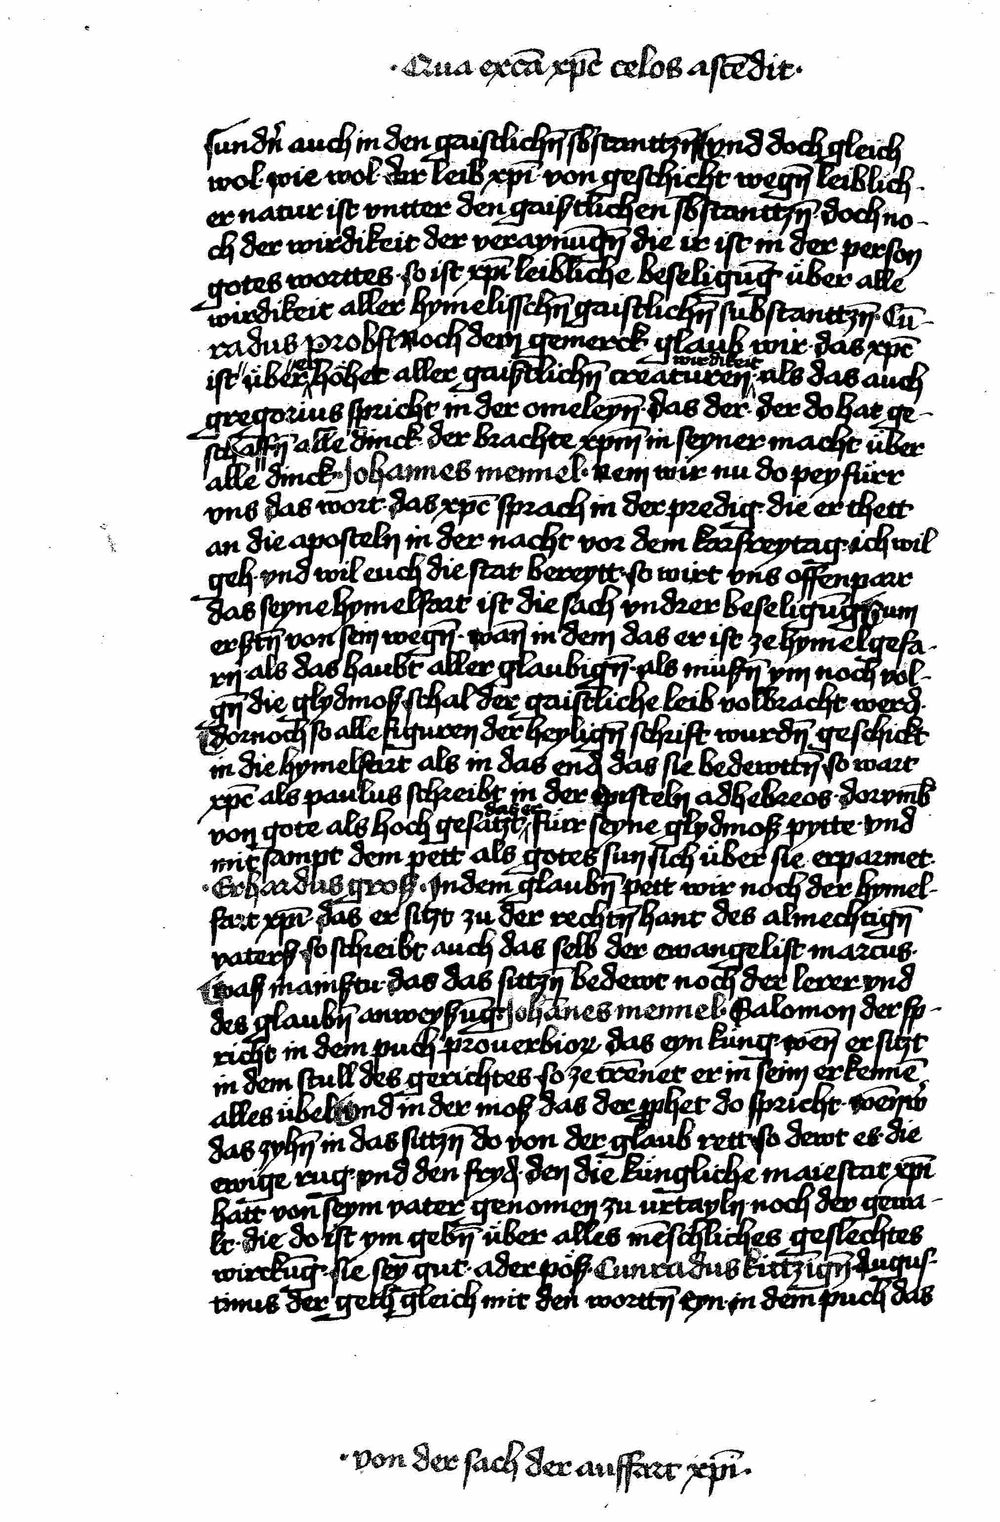 ·Qua excā xp̄c celos asce̅dit·
sundn̄ auch in den gaistlichn̄ sbstanttzn̄ vnd doch gleich
wol· wie wol· der leib xpī· von geschicht wegn̄ leiblich·
er natur ist vntter den gaistlichen sbstanttzn̄· doch no-
ch der wirdikeit der veraynu̅gn̄ die ir ist in der person
gotes worttes· so ist xpī leibliche beseligu̅g über alle
wirdikeit aller hymelisschn̄ gaistlichn̄ substanttzn̄· Cu̅-
radus probst Noch dem gemerck· glaub wir· das xp̄c
ist über höhet aller gaistlichn̄ creaturen wirdikeit· als das auch
gregorius spricht in der omeleyn̄· das der· der do hat ge-
schaffn̄ alle dinck· der brachte xpm̄ in seyner macht über
alle dinck· Johannes mennel· Nem wir nu do pey fürr
vns das wort· das xp̄c sprach in der predig· die er thett
an die aposteln in der nacht vor dem karfreytag· ich wil
geh· vnd wil euch die stat bereytt· so wirt vns offenparr
das seyne hymelfart ist die sach vndrer beseligu̅gn̄ zum
erstn̄ von sein wegn̄· wan̄ in dem das er ist ze hymel gefa-
rn̄ als das haubt aller glaubign̄· als müssn̄ ym noch vol-
gn̄ die glydmoß schal der gaistliche leib volbracht werd·
dornoch so alle figuren der heylign̄ schrift wurdn̄ geschickt
in die hymelfart als in das end das sie bedewttn̄· so wart
xp̄c als paulus schreibt in der episteln ad hebreos· dorvmb
von gote als hoch gesatzt· das er fürr seyne glydmoß pytte· vnd
mit sampt dem pett als gotes sun sich über sie erparmet·
·Erhardus groß· In dem glaubn̄ pett wir noch der hymel-
fart xpī· das er sitzt zu der rechtn̄ hant des almechtign̄
vaters so schreibt auch das selb der ewangelist marcus·
was mainstu· das das sittzn̄ bedewt noch der lerer vnd
des glaubn̄ anweysu̅g· Joha̅nes mennel· Salomon der sp-
richt in dem puch prouerbior· das eyn küng· wen̄ er sitzt
in dem stull des gerichtes· so ze tre̅net er in seim erkenne̅
alles übel vnd in der moß das der pphet do spricht·
das zyhn̄ in das sittzn̄ do von der glaub rett· so dewt es die
ewige rug· vnd den fryd· den die küngliche maiestat xpī
hatt von seym vater genomen zu vrtayln· noch der gewa-
lt· die do ist ym gebn̄ über alles me̅schliches geslechtes
wircku̅g· sie sey gut· ader pöß· Cunradus kittzīgn̄· Augus-
tinus der geth gleich mit den worttn̄ eyn· in dem puch das
·von der sach der auffart xpī·